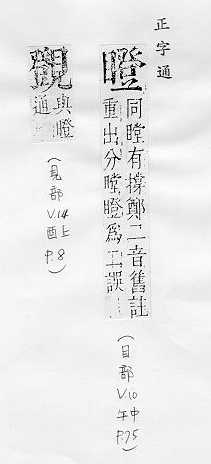 正字通
瞪
同瞠有撐鄭二音舊註
重出分瞠瞪爲二誤
(目部 V.10 午中 P.75)
覴
與瞪
通
(見部 V.14 酉上 P.8)